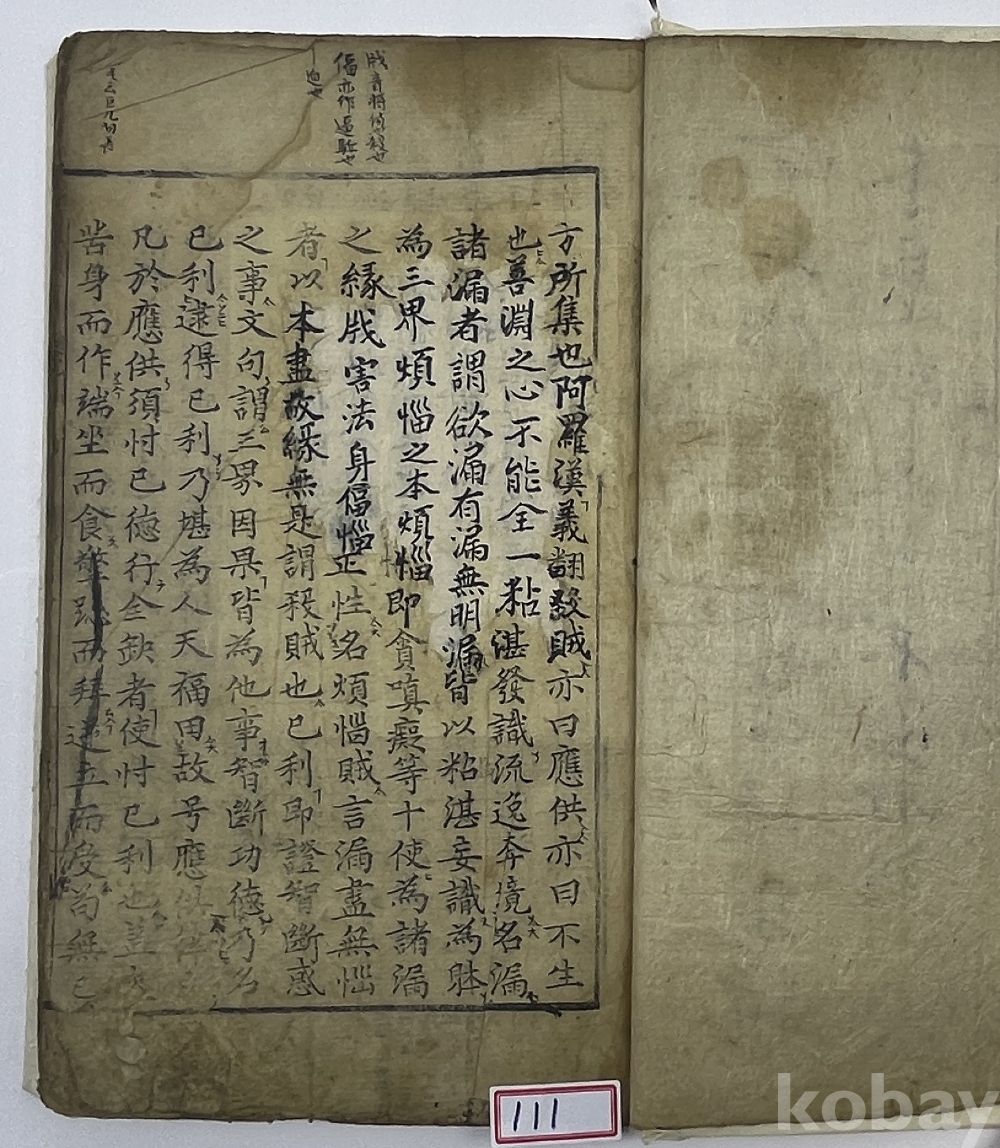 方所集也阿羅漢義翻殺賊亦曰應供亦曰不生
也善淵之心不能全一粘湛發識流逸奔境名漏
諸漏者謂欲漏有漏無明漏皆以粘湛妄識為體
為三界煩惱之本煩惱即貪嗔癡等十使為諸漏
之緣戕害法身偪惱正性名煩惱賊言漏盡無惱
者以本盡故緣無是謂殺賊也已利即證智斷惑
之事文句謂三界因果皆為他事智斷功德乃名
已利逮得已利乃堪為人天福田故号應供
凡於應供須忖已德行全缺者使忖已利也豈
苦身而作端坐而食擎跽而拜逆立而受苟無已
戕音將
偪亦作逼
111
kobay